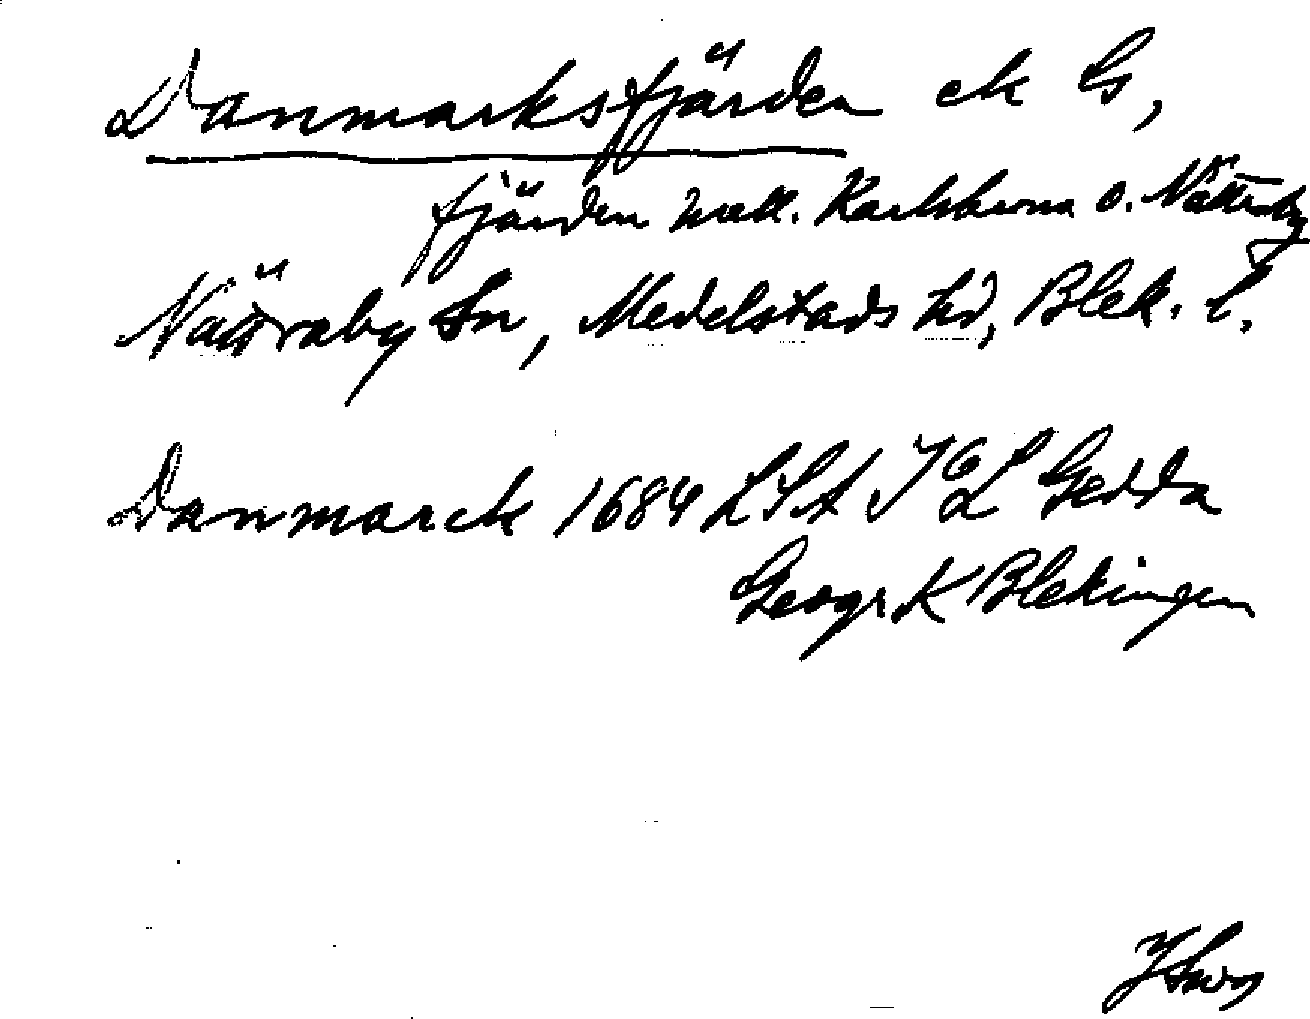 Danmarksfjärden ek G,
fjärden mell. Karlskrona o. Nättraby
Nättraby Sn, Medelstads hd, Blek. l.
Danmarck 1684 LSA Gedda
Geogr. K Blekingen